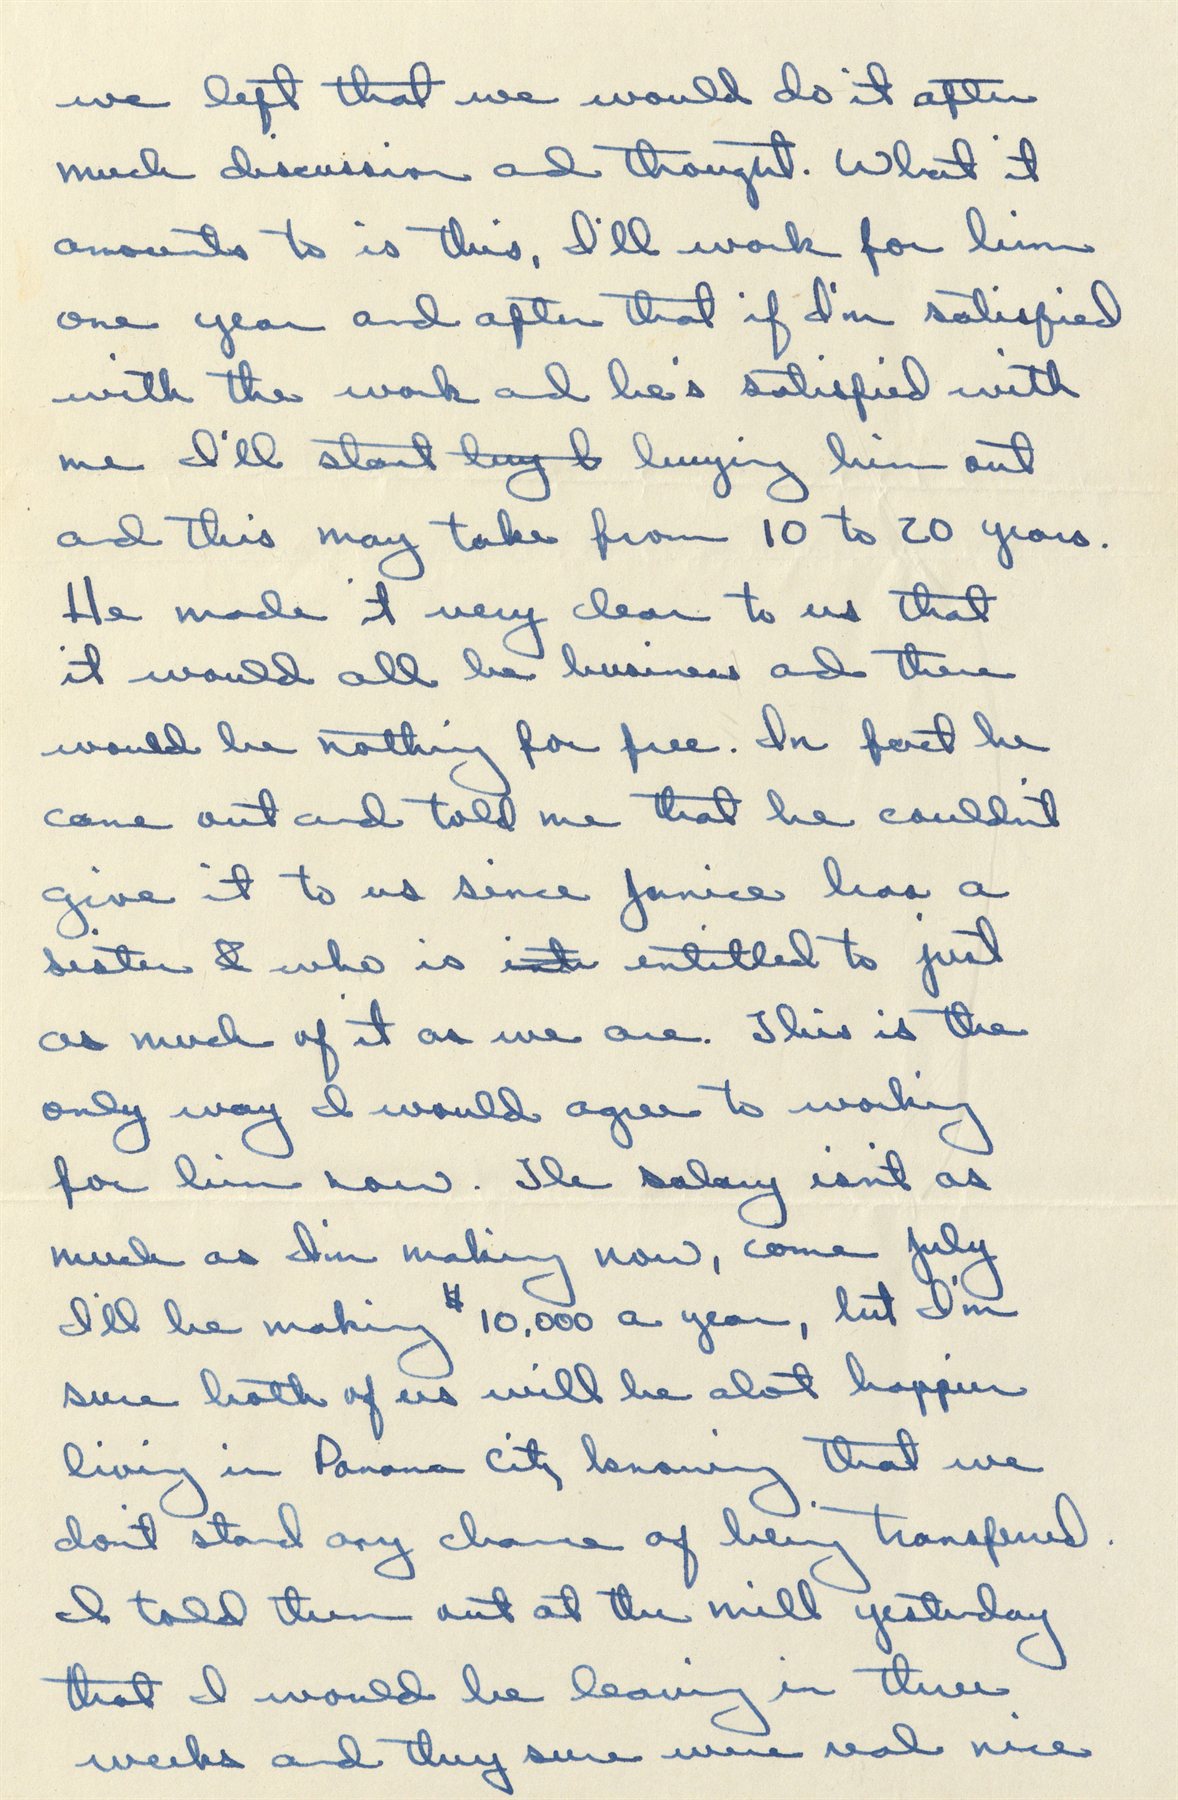 we left that we would do it after
much discussion and thought. What it
amounts to is this, I'll work for him
one year and after that if I'm satisfied
with the work and he's satisfied with
me I'll start buy b buying him out
and this may take from 10 to 20 years.
He made it very clear to us that
it would all be business and there
would be nothing for free. In fact he
came out and told me that he couldn't
give it to us since Janice has a
sister & who is inti entitled to just
as much of it as we are. This is the
only way I would agree to working
for him now. The salary isn't as
much as I'm making now, come July
I'll be making $10,000 a year, but I'm
sure both of us will be alot happier
living in Panama City knowing that we
don't stand any chance of being transferred.
I told them out at the mill yesterday
that I would be leaving in three
weeks and they sure were real nice